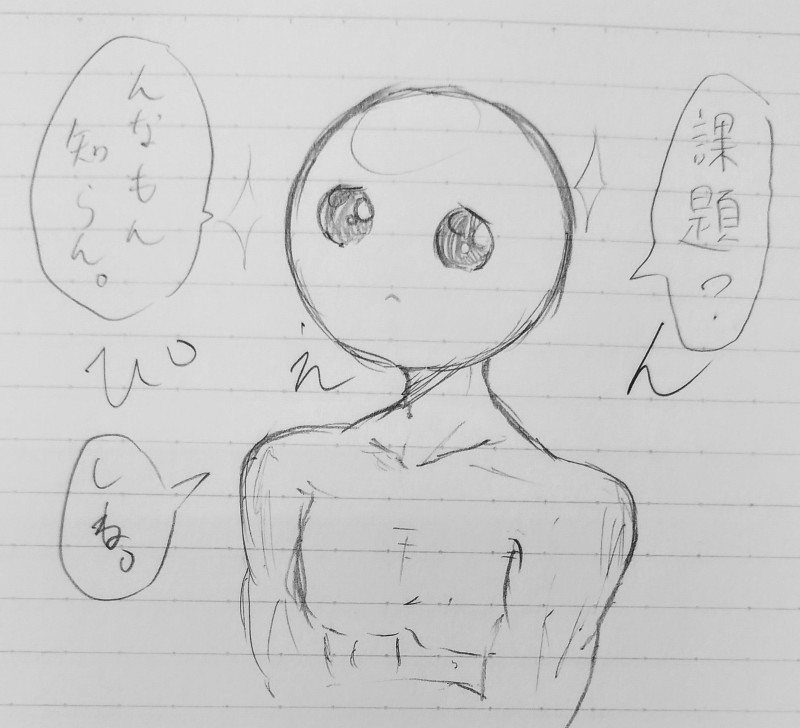 課題?
んなもん
知らん。
ぴえん
しね。